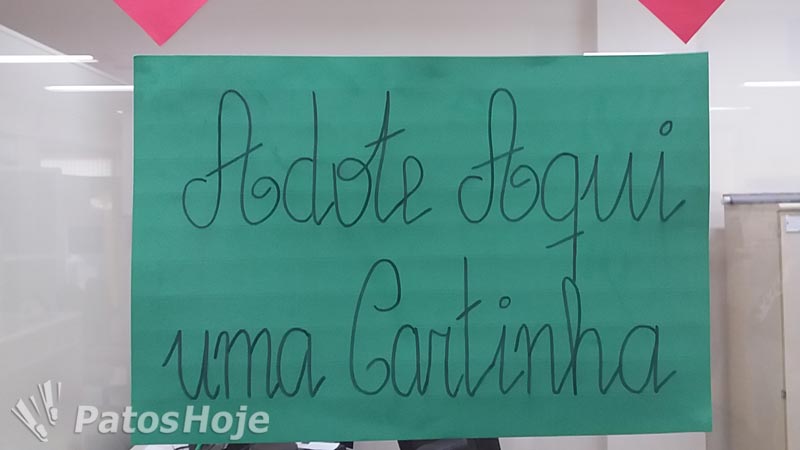 Adote Aqui
uma Cartinha
PatosHoje